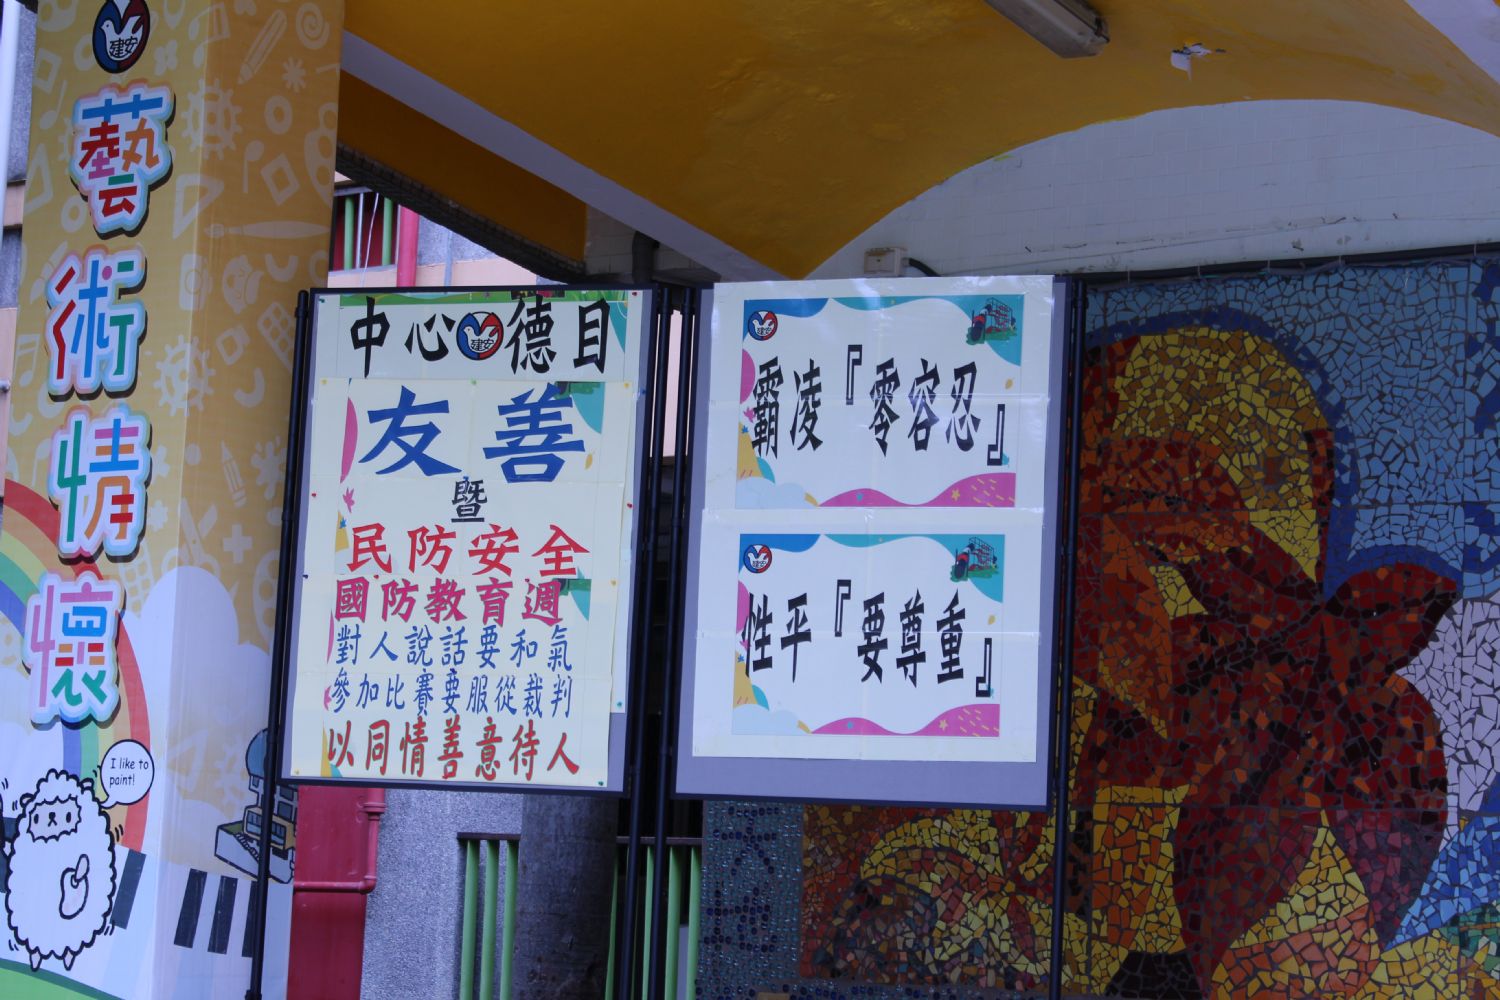 建安
藝術情懷
I like to
paint!
中心建安德目
友善
暨
民防安全
國防教育週
對人說話要和氣
參加比賽要服從裁判
以同情善意待人
建安
霸凌『零容忍』
建安
性平『要尊重』